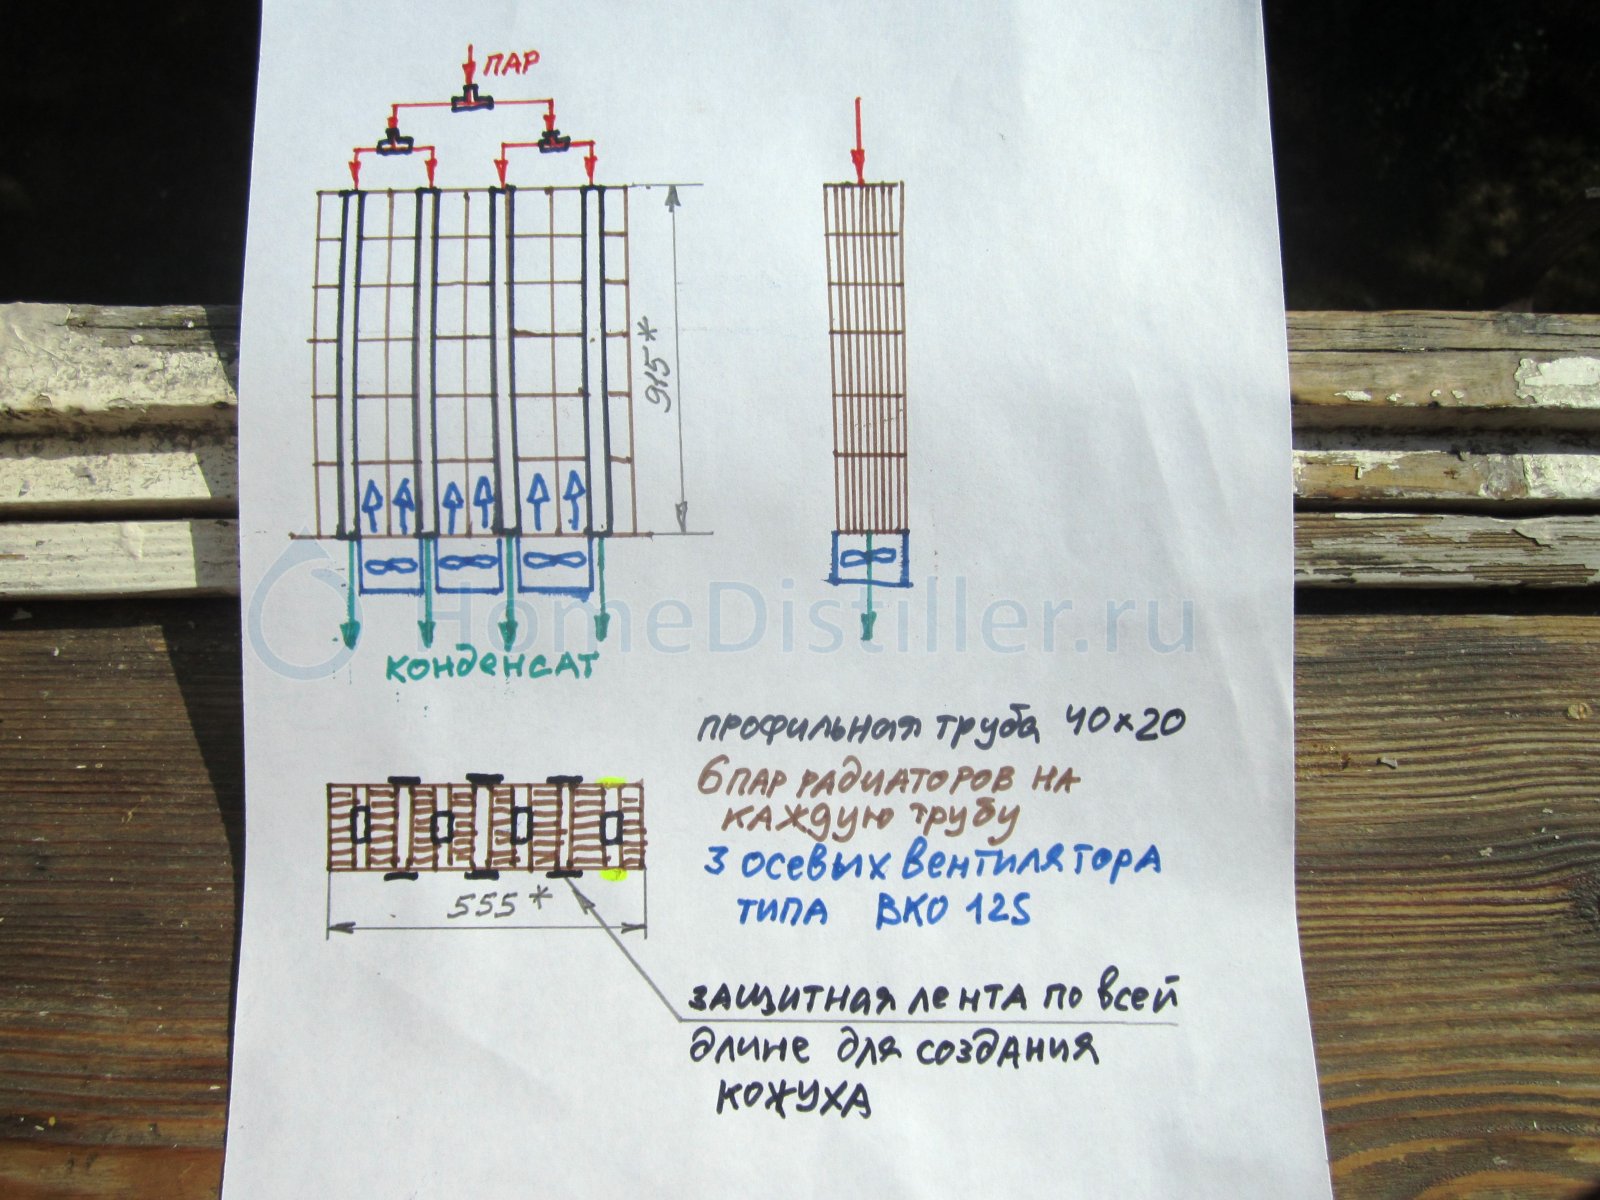 ПАР
915*
КОНДЕНСАТ
HomeDistiller.ru
профильная труба 40х20
6 ПАР РАДИАТОРОВ НА
КАЖДУЮ ТРУБУ
3 ОСЕВЫХ ВЕНТИЛЯТОРА
ТИПА ВКО 125
555*
ЗАЩИТНАЯ ЛЕНТА ПО ВСЕЙ
ДЛИНЕ ДЛЯ СОЗДАНИЯ
КОЖУХА